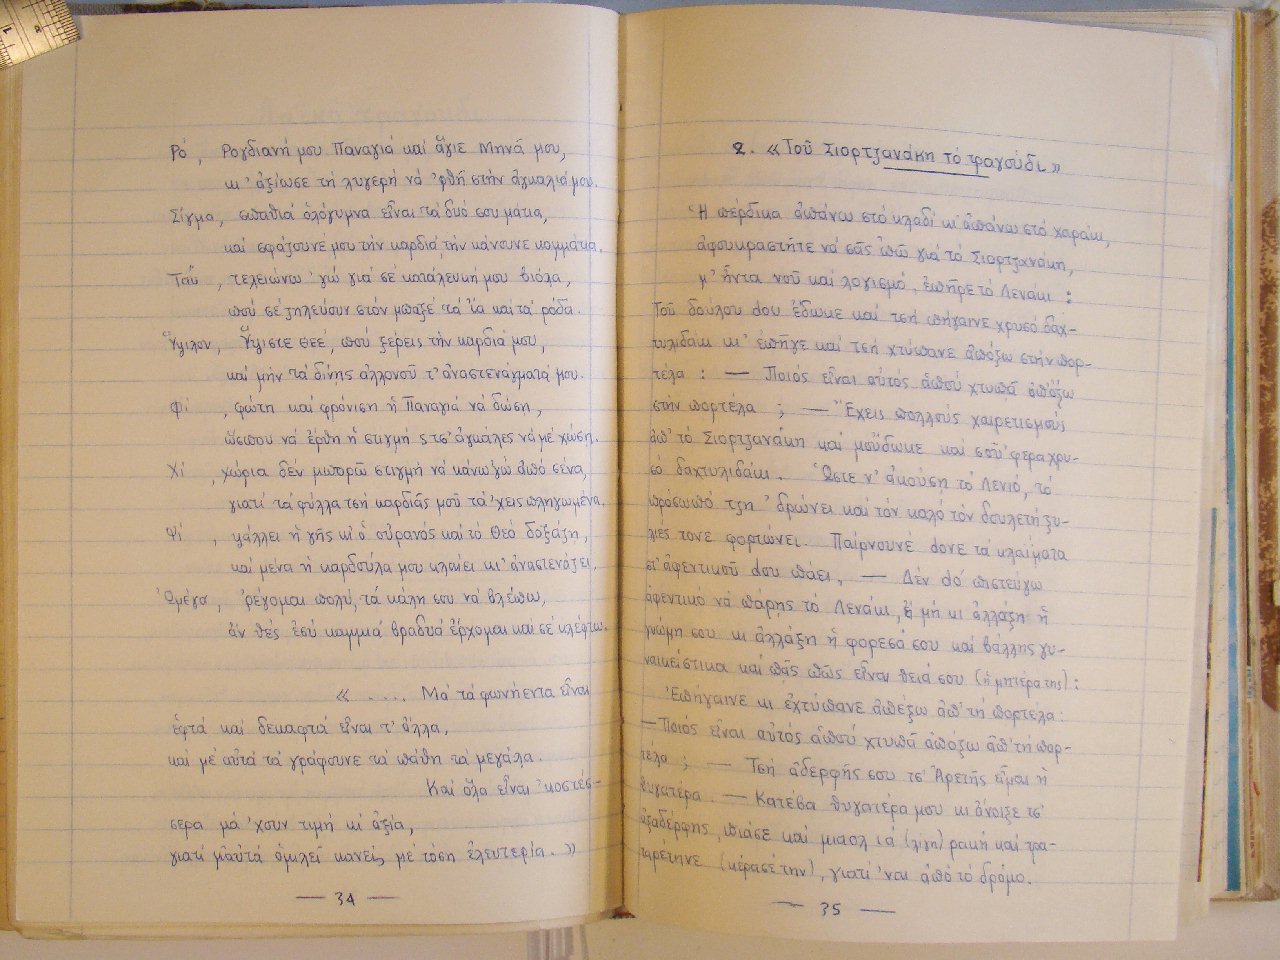 Ρό, Ρογδιανή μου Παναγιά καί ἅγιε Μηνᾶ μου,
κι' ἀξίωσε τή λυγερή νά 'ρθῆ στήν ἀγκαλιά μου.
Σίγμα, σπαθιά ὁλόγυμνα εἶναι τά δυό σου μάτια,
καί σφάζουνέ μου τήν καρδιά, τήν κάνουνε κομμάτια.
Ταῦ, τελειώνω 'γώ γιά σέ κατάλευκή μου βιόλα,
πού σέ ζηλεύουν στόν μπαξέ τά ἴα καί τά ρόδα.
Ὕψιλον, Ὕψιστε Θεέ, πού ξέρεις τήν καρδιά μου,
καί μήν τά δίνης ἀλλονοῦ τ' ἀναστενάγματά μου.
Φί, φώτη καί φρόνιση ἡ Παναγιά νά δώση,
ὥσπου νά ἔρθη ἡ στιγμή στσ' ἀγκάλες νά μέ χώση.
Χί, χώρια δέν μπορῶ στιγμή νά κάνω 'γώ ἀπό σένα,
γιατί τά φύλλα τσή καρδιᾶς μοῦ τά 'χεις πληγωμένα.
Ψί, ψάλλει ἡ γῆς κι' ὁ οὐρανός καί τό Θεό δοξάζη,
καί μένα ἡ καρδούλα μου κλαίει κι' ἀναστενάζει.
Ὠμέγα, ὀρέγομαι πολύ, τά κάλη σου νά βλέπω,
ἄν θές ἐσύ καμμιά βραδυά ἔρχομαι καί σέ κλέφτω.
« .... Μά τά φωνήεντα εἶναι
ἑφτά καί δεκαφτά εἶναι τ' ἄλλα,
καί μέ αὐτά τά γράφουνε τά πάθη τά μεγάλα.
Καί ὅλα εἶναι 'κοστέσ-
σερα μά 'χουν τιμή κι' ἀξία,
γιατί μ' αὐτά ὁμιλεῖ κανείς μέ τόση ἐλευτερία. »
— 34 —
2. « Τοῦ Σιορτζανάκη τό τραγούδι »
Ἡ πέρδικα ἀπάνω στό κλαδί κι' ἀπάνω στό χαράκι,
ἀφουκραστῆτε νά σᾶς ἰπῶ γιά τό Σιορτζανάκη,
μ' ἦντα νοῦ καί λογισμό, ἐπῆρε τό Λενάκι :
Τοῦ δούλου dου ἔδωκε καί τσή πήγαινε χρυσό δαχ-
τυλιδάκι κι' ἐπῆγε καί τσή χτύπανε ἀπόξω στήν πορ-
τέλα : — Ποιός εἶναι αὐτός ἁπού χτυπᾶ ἀπόξω
στήν πορτέλα ; — Ἔχεις πολλούς χαιρετισμούς
ἀπ' τό Σιορτζανάκη καί μοὔδωκε καί σοῦ 'φερα χρυ-
σό δαχτυλιδάκι. Ὥστε ν' ἀκούση τό Λενιό, τό
πρόσωπό τζη 'δρώνει καί τόν καλό τόν δουλετή ξυ-
λιές τονε φορτώνει. Παίρνουνε dονε τά κλαίματα
στ' ἀφεντικοῦ dου πάει, — Δέν dό πιστεύγω
ἀφεντικό νά πάρης τό Λενάκι, ἄ μή κι ἀλλάξη ἡ
γνώμη σου κι ἀλλάξη ἡ φορεσά σου καί βάλλης γυ-
ναικείστικα καί πᾶς πῶς εἶναι θειά σου (ἡ μητέρα της) :
Ἐπήγαινε κι ἐχτύπανε ἀπέξω ἀπ' τή πορτέλα :
— Ποιός εἶναι αὐτός ἁπού χτυπᾶ ἀπόξω ἀπ' τή πορ-
τέλα ; — Τσή ἀδερφῆς σου τσ' Ἀρετῆς εἶμαι ἡ
θυγατέρα. — Κατέβα θυγατέρα μου κι ἄνοιξε τσ'
ἀξαδέρφης, πιάσε καί μιαολιά (λίγη) ρακή καί τρα-
ταρέτηνε (κέρασέ την), γιατί 'ναι ἀπό τό δρόμο.
— 35 —